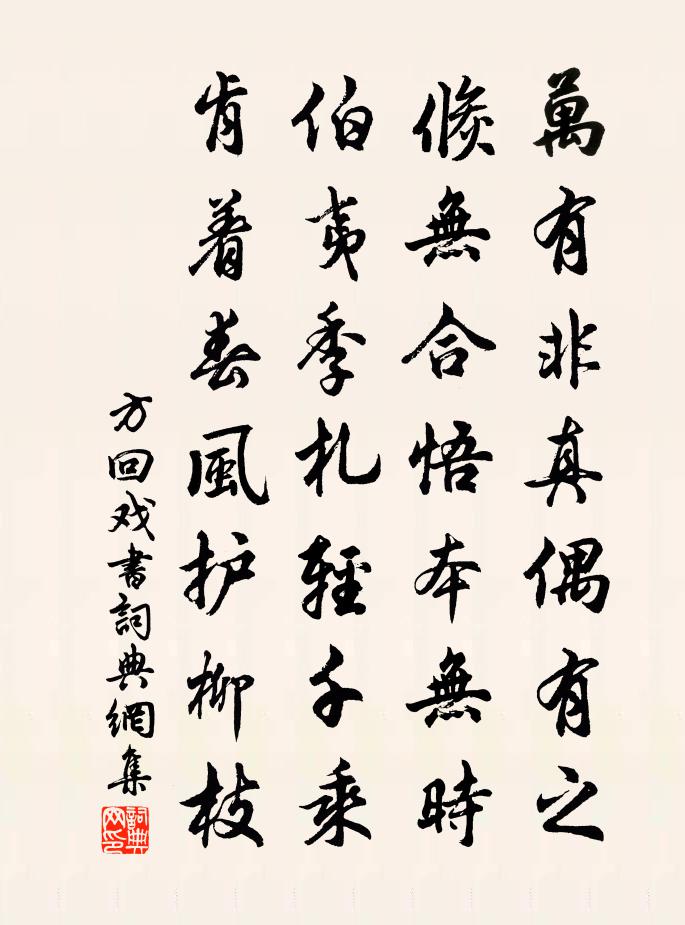 萬有非真偶有之
倐無合悟本無時
伯夷季札輕千乘
肯着春風护柳枝
方回戏書詞典網集
詞典网印